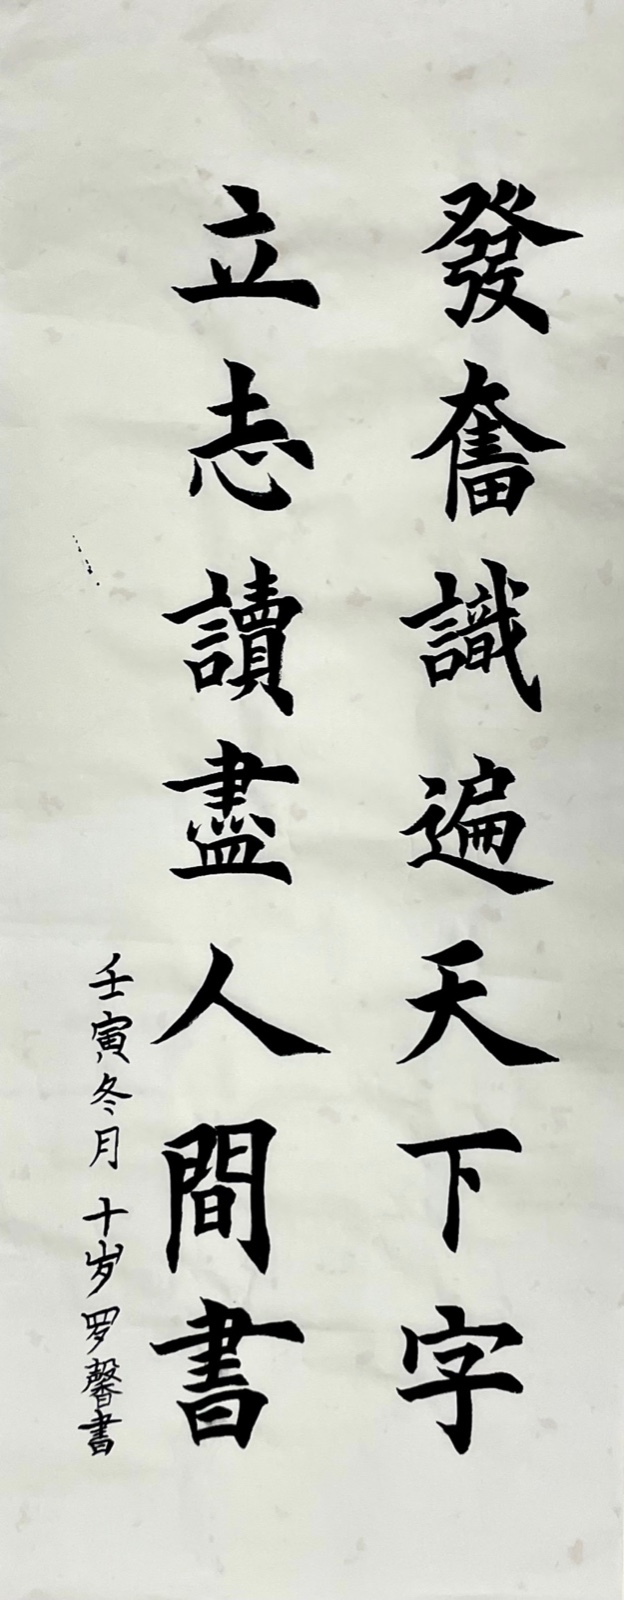 發奮識遍天下字
立志讀盡人間書
壬寅冬月十岁罗馨書